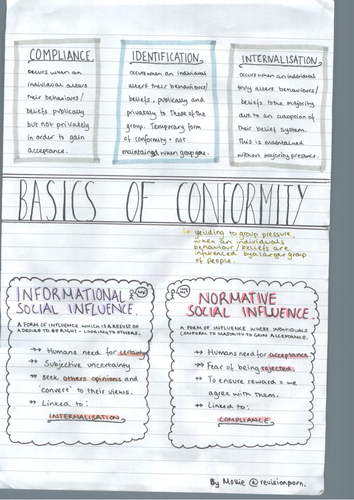 COMPLIANCE
occurs when an
individual alters
their behaviours/
beliefs publically
but not privately
in order to gain
acceptance.
IDENTIFICATION
occurs when an individual
alters their behaviours/
beliefs, publically and
privately to those of the
group. Temporary form
of conformity = not
maintained when group gone.
INTERNALISATION
occurs when an individual
truly alters behaviours/
beliefs to the majority
due to an adoption of
their belief system.
This is maintained
without majority presence.
BASICS OF CONFORMITY
yeilding to group pressure,
when an individuals
behaviour/beliefs are
inferenced by a larger group
of people.
INFORMATIONAL
SOCIAL INFLUENCE.
A FORM OF INFLUENCE WHICH IS A RESULT OF
A DESIRE TO BE RIGHT - LOOKING TO OTHERS.
→ Humans need for certainty
→ Subjective uncertainty
→ Seek others opinions and
'convert' to their views.
→ Linked to:
INTERNALISATION
NORMATIVE
SOCIAL INFLUENCE.
A FORM OF INFLUENCE WHERE INDIVIDUALS
CONFORM TO MAJORITY TO GAIN ACCEPTANCE.
→ Humans need for acceptance
→ Fear of being rejected.
→ To ensure reward = we
agree with them.
→ Linked to:
COMPLIANCE
By Mollie @revisionporn.